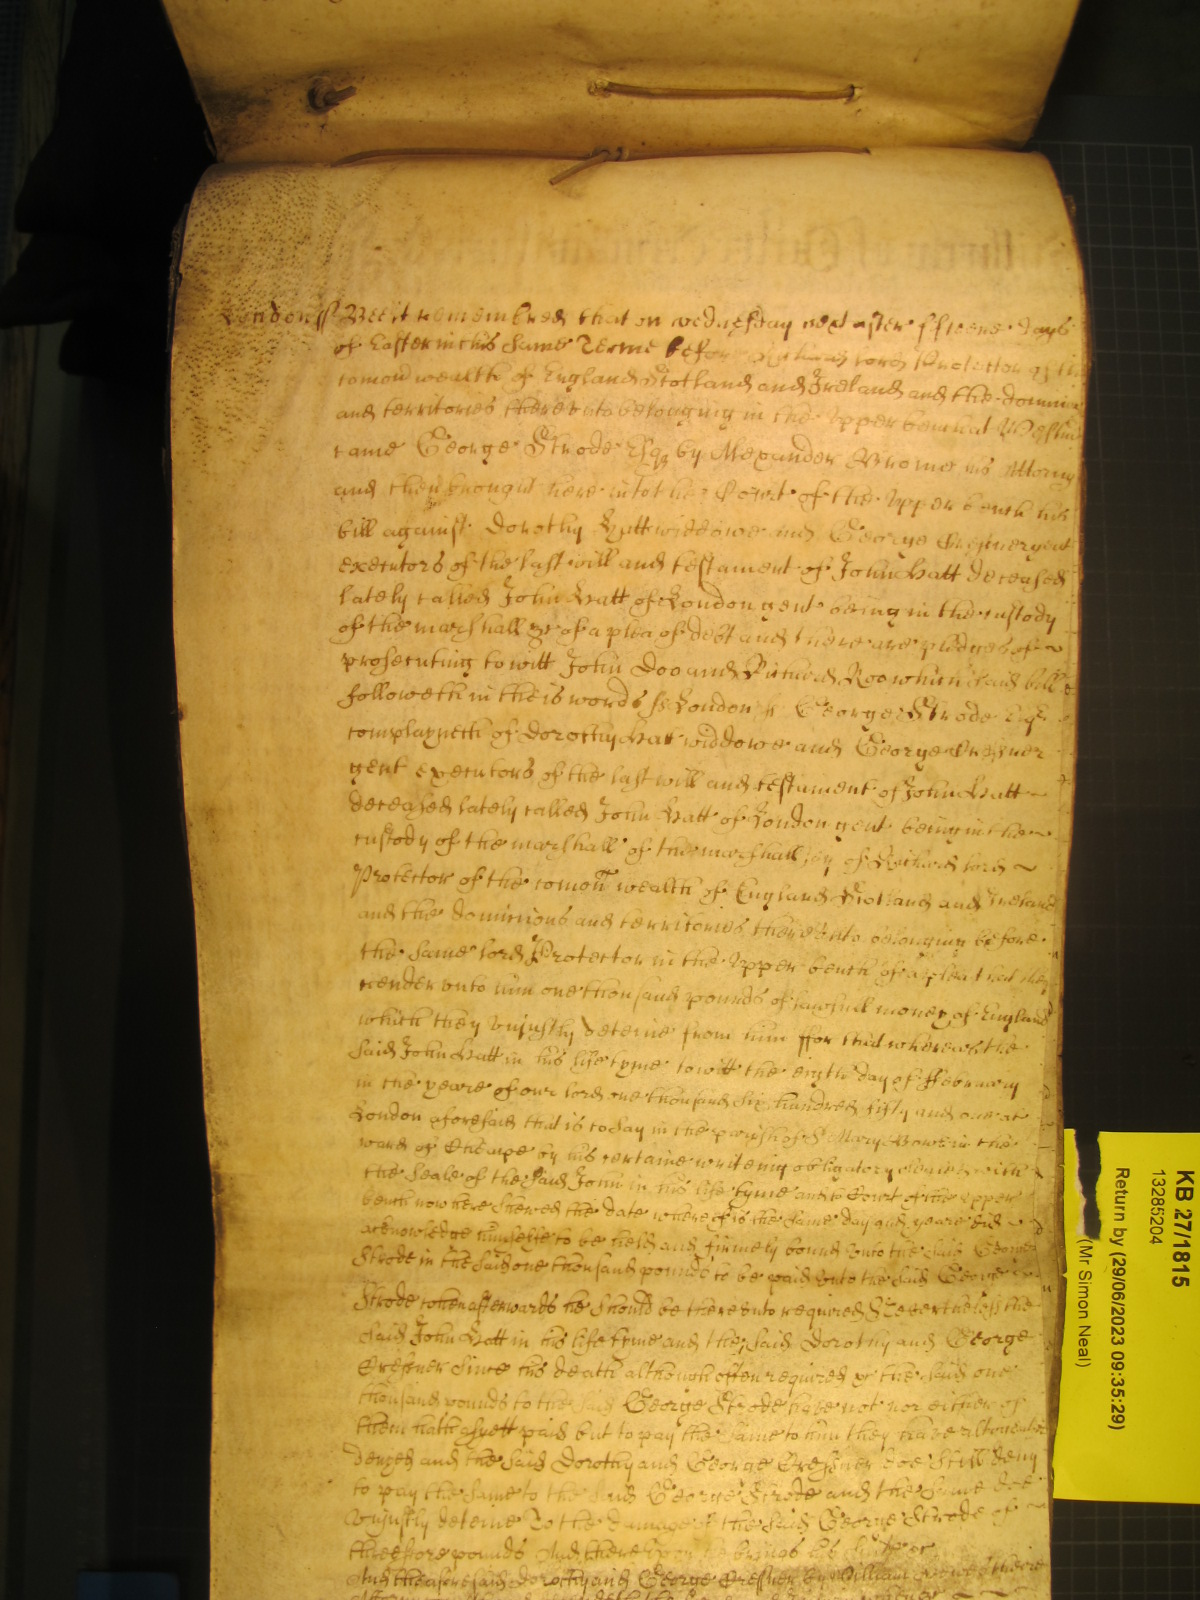 London ss Bee it remembred that on wednesday next after fifteene dayes
of Easter in this same Terme before Richard lord Protector of the
comonwealth of England Scotland and Ireland and the dominions
and territories thereunto belonging in the upper bench at Westm
came George Strode Esqr by Alexander Brome his Attorny
and then brought here into the Court of the upper bench his
bill against Dorothy Hatt widdowe and George gent
executors of the last will and testament of John Hatt deceased
lately called John Hatt of London gent being in the custody
of the marshall &c of a plea of debt and there are pledges of
prosecuting to witt John Doo and Richard Roo which said bill
followeth in theis words ss London ss George Strode Esqr
complayneth of Dorothy Hatt widdowe and George Gressner
gent executors of the last will and testament of John Hatt
deceased lately called John Hatt of London gent being in the
custody of the marshall of the marshallsey of Richard lord
Protector of the comon wealth of England Scotland and Ireland
and the dominions and territories thereunto belonging before
the same lord Protector in the upper bench of a plea that they
render unto him one thousand pounds of lawfull money of England
which they uniustly deteine from him ffor that whereas the
said John Hatt in his life tyme to witt the eigth day of ffebruary
in the yeare of our lord one thousand six hundred fifty and one at
London aforesaid that is to say in the parish of St Mary Bowe in the
ward of Cheape by his certaine writeing obligatory sealed with
the seale of the said John in his life tyme and to Court of the upper
bench now here shewed the date whereof is the same day and yeare did
acknowledge himselfe to be held and firmely bound unto the said George
Strode in the said one thousand pounds to be paid unto the said George
Strode when afterwards he should be thereunto required Neverthelesse the
said John Hatt in his life tyme and the said Dorothy and George
Gressner since his death although often required &c the said one
thousand pounds to the said George Strode have not nor either of
them hath as yett paid but to pay the same to him they have altogeather
denyed and the said Dorothy and George Gressner doe still deny
to pay the same to the said George Strode and the same doe
uniustly deteine To the damage of the said George Strode of
threescore pounds And thereupon he brings his suite &c
And the aforesaid Dorothy and George Gressner by William theire
KB 27/1815
13285204
Return by (29/06/2023 09:35:29)
(Mr Simon Neal)